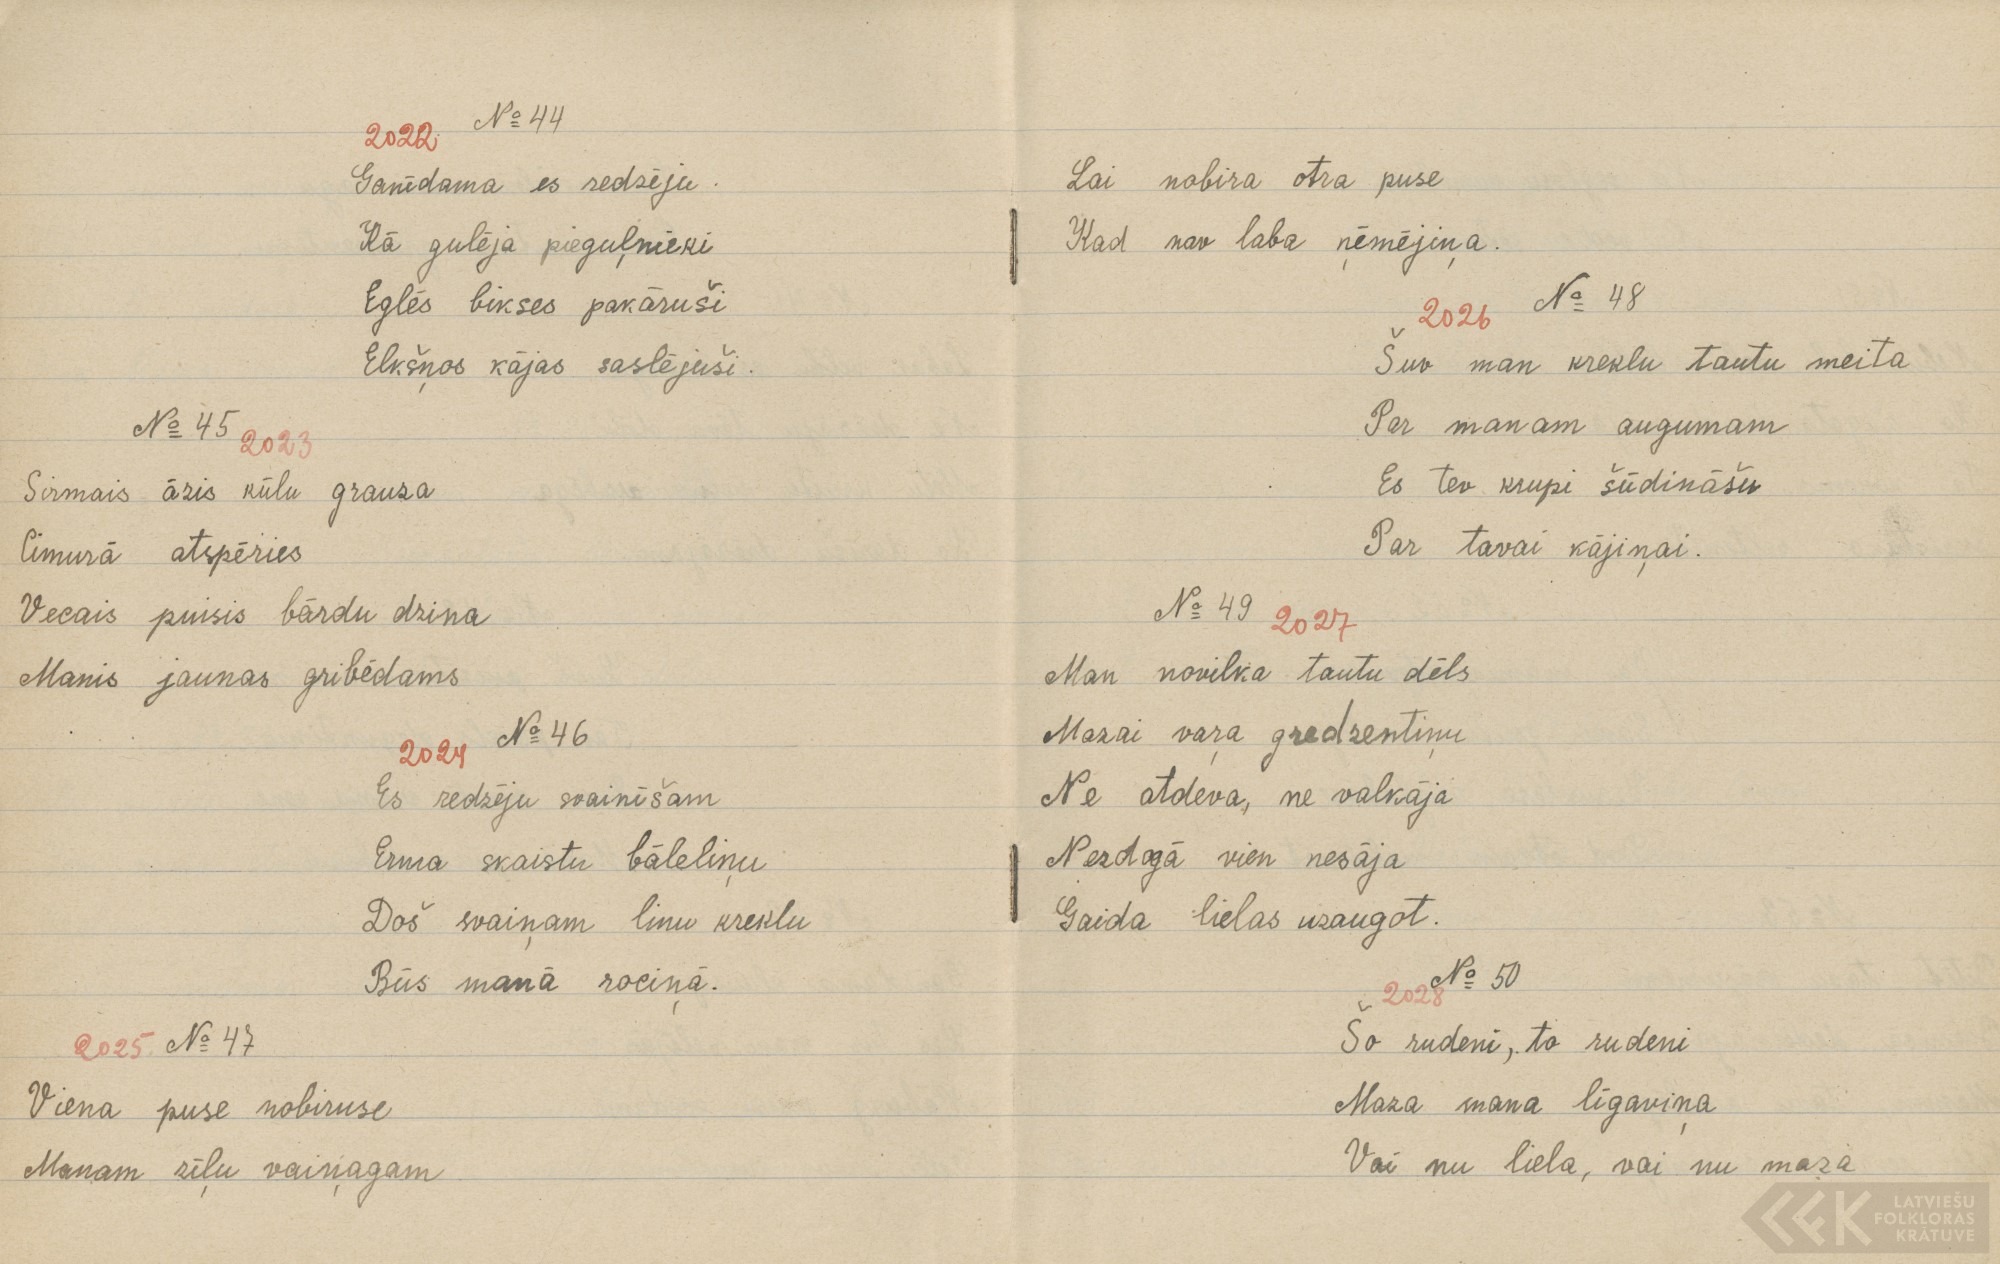 № 44
2022
Ganīdama es redzēju.
Kā gulēja pieguļnieki
Eglēs bikses pakāruši
Elkšņos kājas saslējuši.
№ 45 2023
Sirmais āzis kūlu grauza
Cimurā atspēries
Vecais puisis bārdu dzina
Manis jaunas gribēdams
№ 46
2024
Es redzēju svainīšam
Erma skaistu bāleliņu
Došsvaiņam linu kreklu
Būs manā rociņā.
2025. № 47
Viena puse nobiruse
Manam zīļu vaiņagam
Lai nobira otra puse
Kad nav laba ņēmējiņa.
№ 48
2026
Šuv man kreklu tautu meita
Par manam augumam
Es tev krupi šūdināšu
Par tavai kājiņai.
№ 49 2027
Man novilka tautu dēls
Mazai vaŗa gredzentiņu
Ne atdeva, ne valkāja
Nezdogā vien nesāja
Gaida lielas uzaugot.
№ 50
2028
Šo rudeni, to rudeni
Maza mana līgaviņa
Vai nu liela, vai nu maza
LATVIEŠU
FOLKLORAS
KRĀTUVE